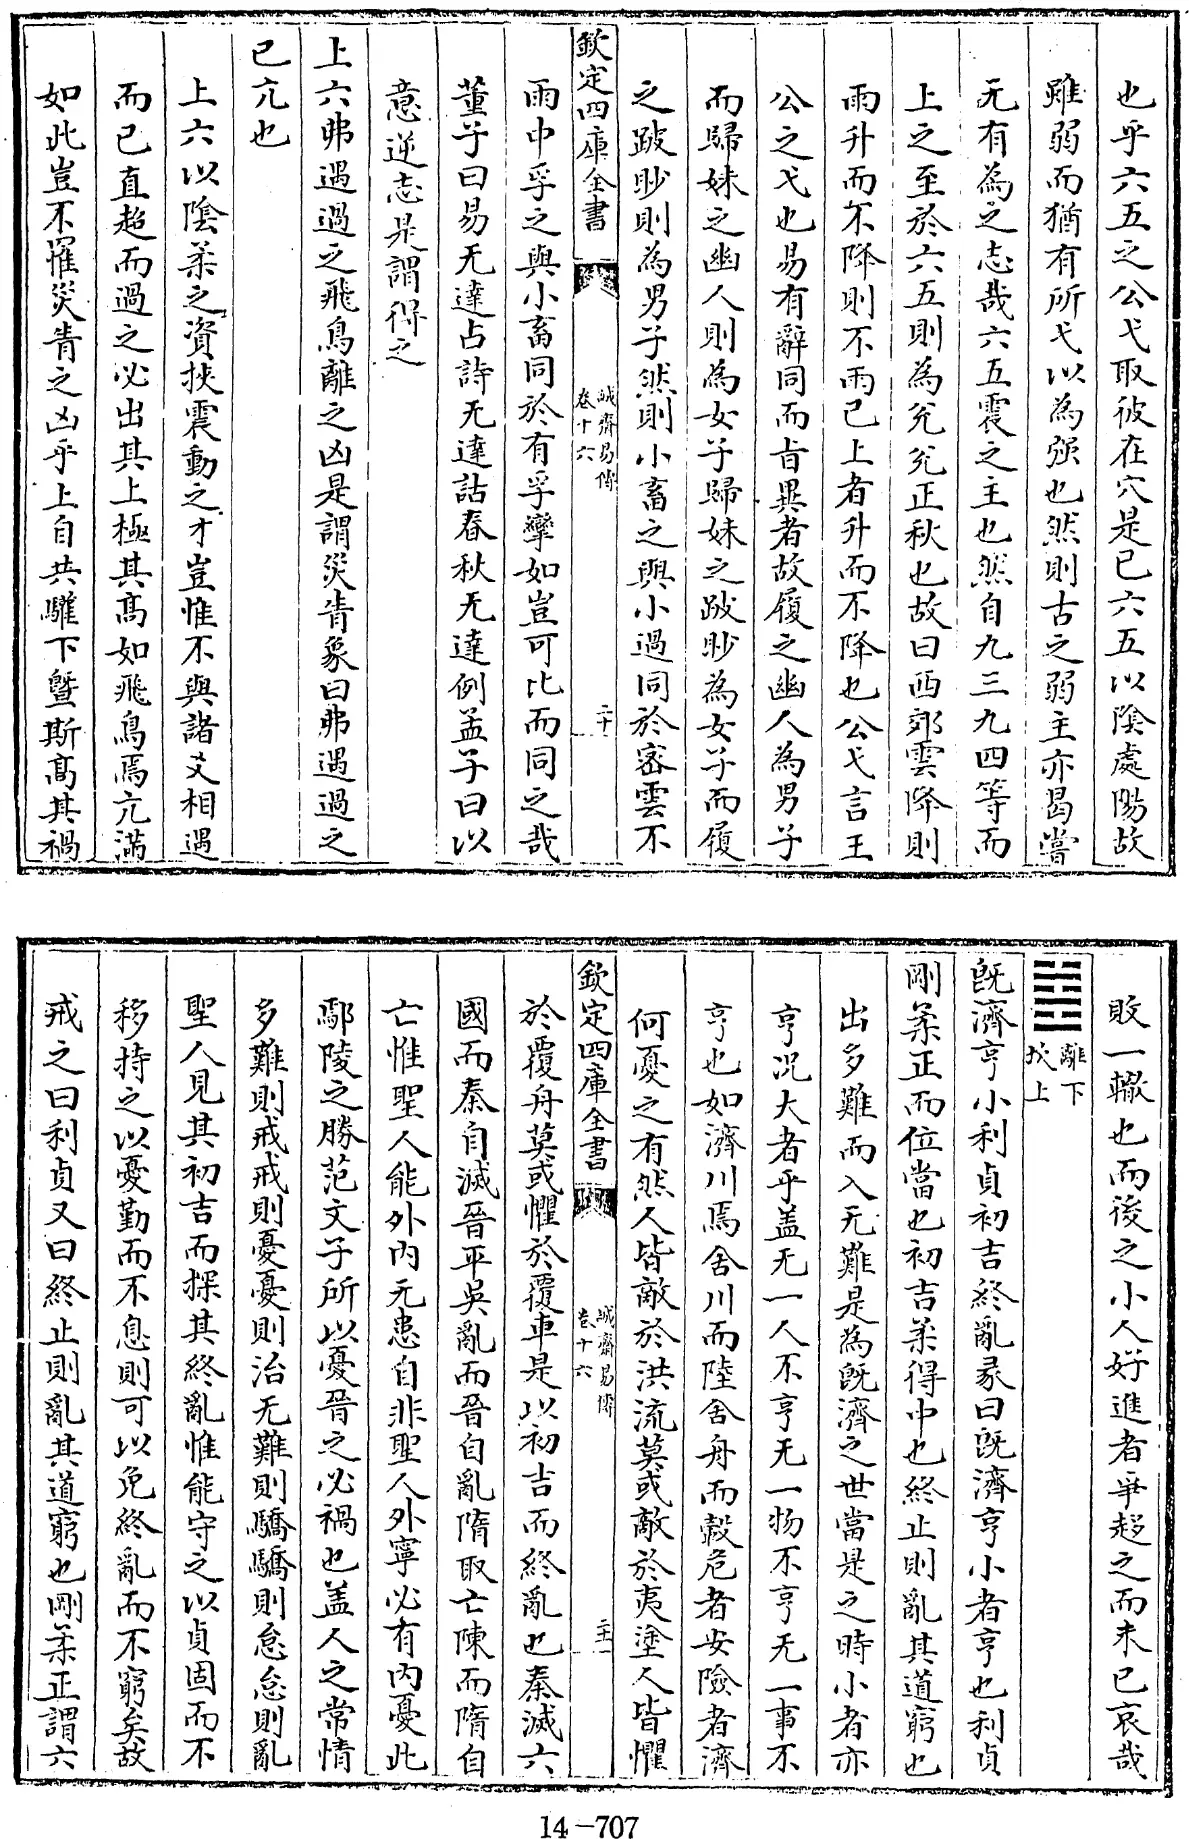 也乎六五之公弋取彼在穴是已六五以陰處陽故
雖弱而猶有所弋以為强也然則古之弱主亦曷嘗
无有為之志哉六五震之主也然自九三九四等而
上之至於六五則為兊兊正秋也故曰西郊雲降則
雨升而不降則不雨已上者升而不降也公弋言王
公之弋也易有辭同而旨異者故履之幽人為男子
而歸妹之幽人則為女子歸妹之跛眇為女子而履
之跛眇則為男子然則小畜之與小過同於密雲不
欽定四庫全書
誠齋易傳
卷十六
二十
雨中孚之與小畜同於有孚攣如豈可比而同之哉
董子曰易无達占詩无達詁春秋无達例孟子曰以
意逆志是謂得之
上六弗遇過之飛鳥離之凶是謂災眚象曰弗遇過之
已亢也
上六以陰柔之資挾震動之才豈惟不與諸爻相遇
而已直超而過之必出其上極其髙如飛鳥焉亢滿
如此豈不罹災眚之凶乎上自共驩下曁斯髙其禍
敗一轍也而後之小人好進者爭趨之而未已哀哉
䷾
離下
坎上
既濟亨小利貞初吉終亂彖曰既濟亨小者亨也利貞
剛柔正而位當也初吉柔得中也終止則亂其道窮也
出多難而入无難是為既濟之世當是之時小者亦
亨况大者乎盖无一人不亨无一物不亨无一事不
亨也如濟川焉舍川而陸舍舟而轂危者安險者濟
何憂之有然人皆敵於洪流莫或敵於夷塗人皆懼
欽定四庫全書
誠齋易傳
卷十六
二十一
於覆舟莫或懼於覆車是以初吉而終亂也秦滅六
國而秦自滅晉平吳亂而晉自亂隋取亡陳而隋自
亡惟聖人能外内无患自非聖人外寧必有内憂此
鄢陵之勝范文子所以憂晉之必禍也盖人之常情
多難則戒戒則憂憂則治无難則驕驕則怠怠則亂
聖人見其初吉而探其終亂惟能守之以貞固而不
移持之以憂勤而不息則可以免終亂而不窮矣故
戒之曰利貞又曰終止則亂其道窮也剛柔正謂六
14-707